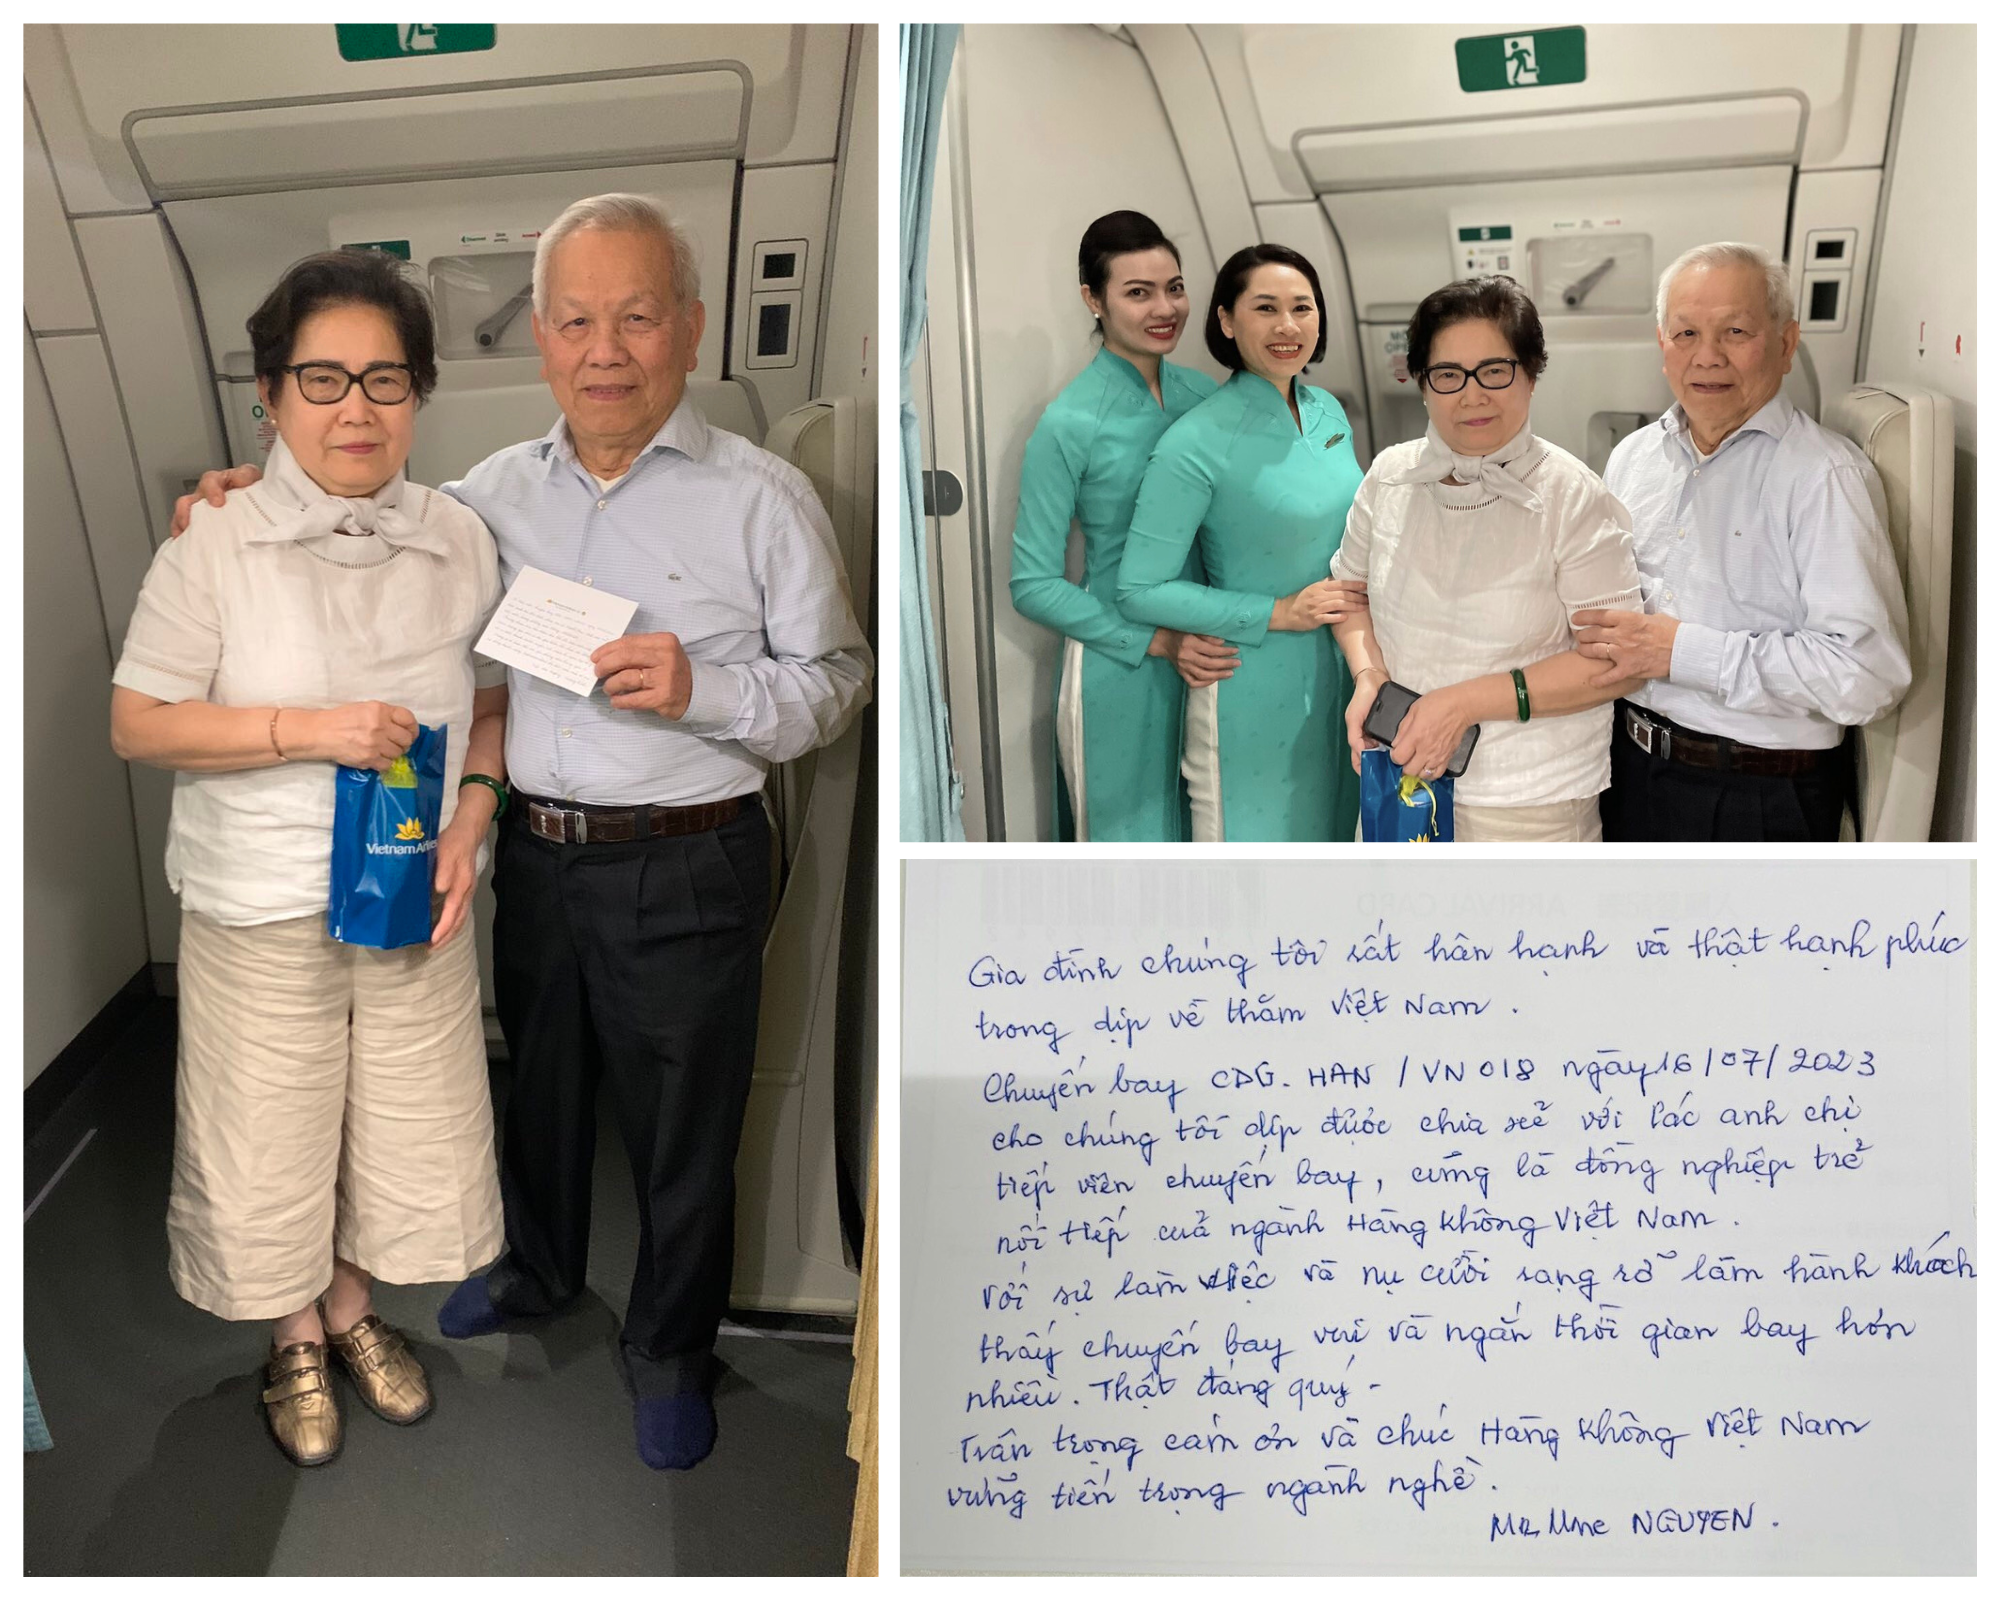 Vietnam Airlines
ARRIVAL CARD
Gia đình chúng tôi rất hân hạnh và thật hạnh phúc
trong dịp về thăm Việt Nam.
Chuyến bay CDG. HAN / VN 018 ngày 16/07/2023
cho chúng tôi dịp được chia sẻ với các anh chị
tiếp viên chuyến bay, cũng là đồng nghiệp trẻ
nối tiếp của ngành Hàng Không Việt Nam.
Với sự làm việc và nụ cười rạng rỡ làm hành khách
thấy chuyến bay vui và ngắn thời gian bay hơn
nhiều. Thật đáng quý -
Trân trọng cám ơn và chúc Hàng Không Việt Nam
vững tiến trong ngành nghề.
Mr. Mme NGUYEN.